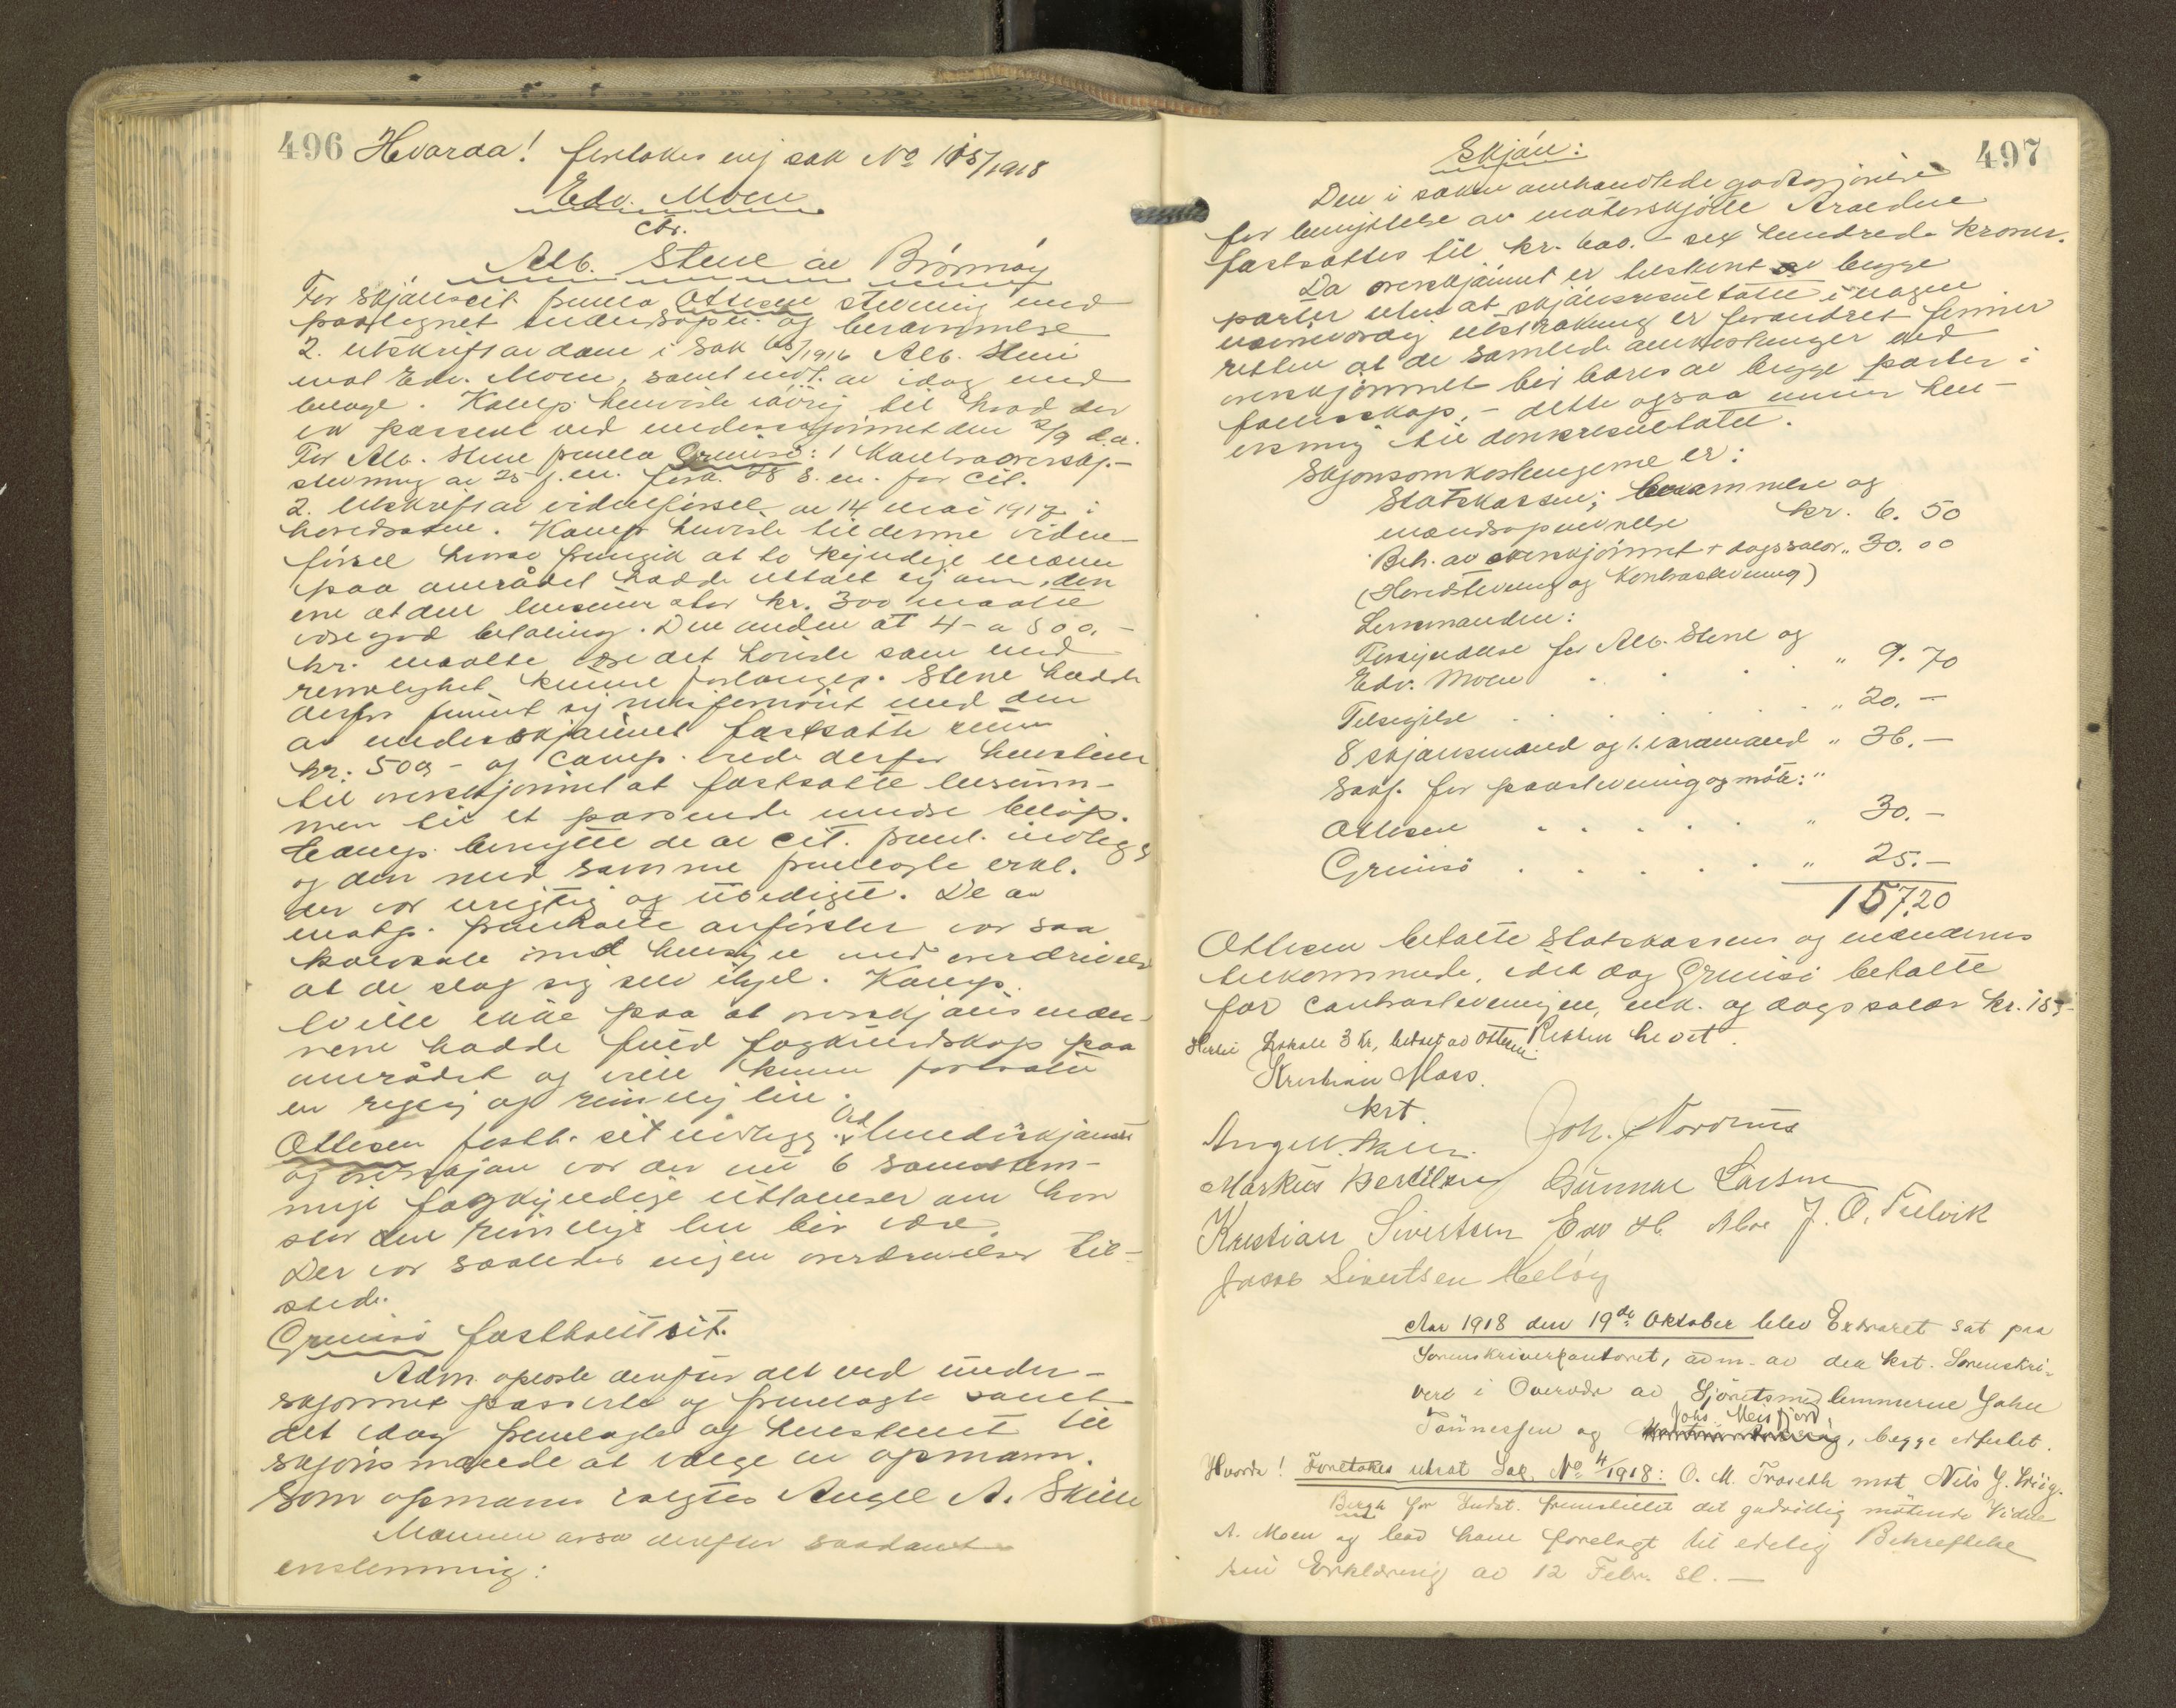 496
Hvorda! foretokes ny sak No 115/1918
Edv. Moen
ctr.
Alb. Stene av Brønnøy
For skjønscit. fremla Ottesen stevning med
paategnet mændsopn. og berammelse
2. utskrift av dom i sak /1916 Alb. Stene
mot Edv. Moen, samt indl. av idag med
bilage. Kamp. henviste iøvrig til hvad der
er passert ved underskjønnet den 2/9 d.a.
For Alb. Stene fremla Grunsø: 1 Kontraoverskj.-
stevning av 25 f.m. fork. for cit.
2. Utskrift av vidneførsel av 14 mai 1917 i
hovedsaken. Komp. henviste til denne vidne-
førsel hvorav fremgik at to kyndige mænn
paa området hadde uttalt sig om, den
ene at den leiesum stor kr. 300 maatte
være god betaling. Den anden at 4- a 500.-
kr. maatte være det høieste som med
rimelighet kunne forlanges. Stene hadde
derfor funnet sig misfornøiet med den
av underskjønnet fastsatte sum
kr. 500 - og comp. vilde derfor henstille
til overskjønnet at fastsætte leiesum-
men til et passende mindre beløp.
Comp. benyttede av cit. freml. indlegg
og den med samme fremlagte erkl.
der var urigtig og ubediget. De av
motp. fremholte anførsler var saa
kolossale med hensyn til overdrivelser
at de slog sig selv ihjel. Komp.
tvilte ikke paa at overskjønsmæn-
nene hadde fuld fagkundskap paa
området og ville kunne fastsætte
en rigtig og rimelig leie.
Ottesen fasth. sit indlegg. Ved underskjønnet
og overskjøn var der nu 6 samstem-
mige fagkyndige uttalelser om hvor
stor den rimelige leie bør være.
Der var saaledes ingen overdrivelser til-
stede.
Grunsø fastholdt sit.
Adm. opleste derefter det ved under-
skjønnet passerte og fremlagte samt
det idag fremlagte og henstillet til
skjønsmændene at vælge en opmann.
Som opmann valgtes Angel A. Skille
Mænnene avsa derefter saadant
enstemmig:
497
Skjøn:
Den i saken omhandlede godtgjørelse
for benyttelse av motorskjøite Aroedue
fastsættes til kr. 600.- sex hundrede kroner.
Da overskjønnet er begge
parter uten at skjønsresultatet i nogen
nævneværdig utstrækning er forandret finner
retten at de samlede omkostninger ved
overskjønnet bør bæres av begge parter i
fællesskap, - dette ogsaa under hen-
visning til domsresultatet.
Skjønsomkostningerne er:
Statskassen; berammelse og
mændsopnevnelse kr. 6.50
Beh. av overskjønnet + dagssalær " 30.00
(Hovedstevning og Kontrastevning)
Lensmanden:
Forkyndelse for Alb. Stene og
Edv. Moen . . . " 9.70
Tilsigelse . . . . . . " 20.-
8 skjønsmænd og 1 varamand " 36.-
Sakf. for paastevning og møte: "
Ottesen . . . . . " 30.-
Grunsø . . . . . " 25.-
157.20
Ottesen betalte Statskassens og mændenes
tilkommende, idet dog Grunsø betalte
for contrastevningen, ink. og dagssalær kr. 15.-
Hertil Lokale 3 kr, betalt av Ottesen. Retten hevet.
Kristian Moss.
kst.
Joh. Nordnes
Markus Bertilsen Gunnar Larsen
Kristian Sivertsen Edv H. Moe J. O. Tilvik
Jacob Sivertsen Heløy
Aar 1918 den 19de Oktober blev Extraret sat paa
Sorenskriverkontoret, adm. av den kst. Sorenskri-
ver i Overvær av Sjøretsmedlemmerne John
Tønnessen og Johs. Mersfjord, begge edfæstet.
Hvorda! Foretokes utsat Sak No 4/1918: O. M. Traseth mot Nils J. Wiig.
Bergh for Indst. fremstillet det godvillig møtende Vidne
A. Moen og lod ham forelagt til edelig Bekreftelse
sin Erklæring av 12 Febr. sl. -